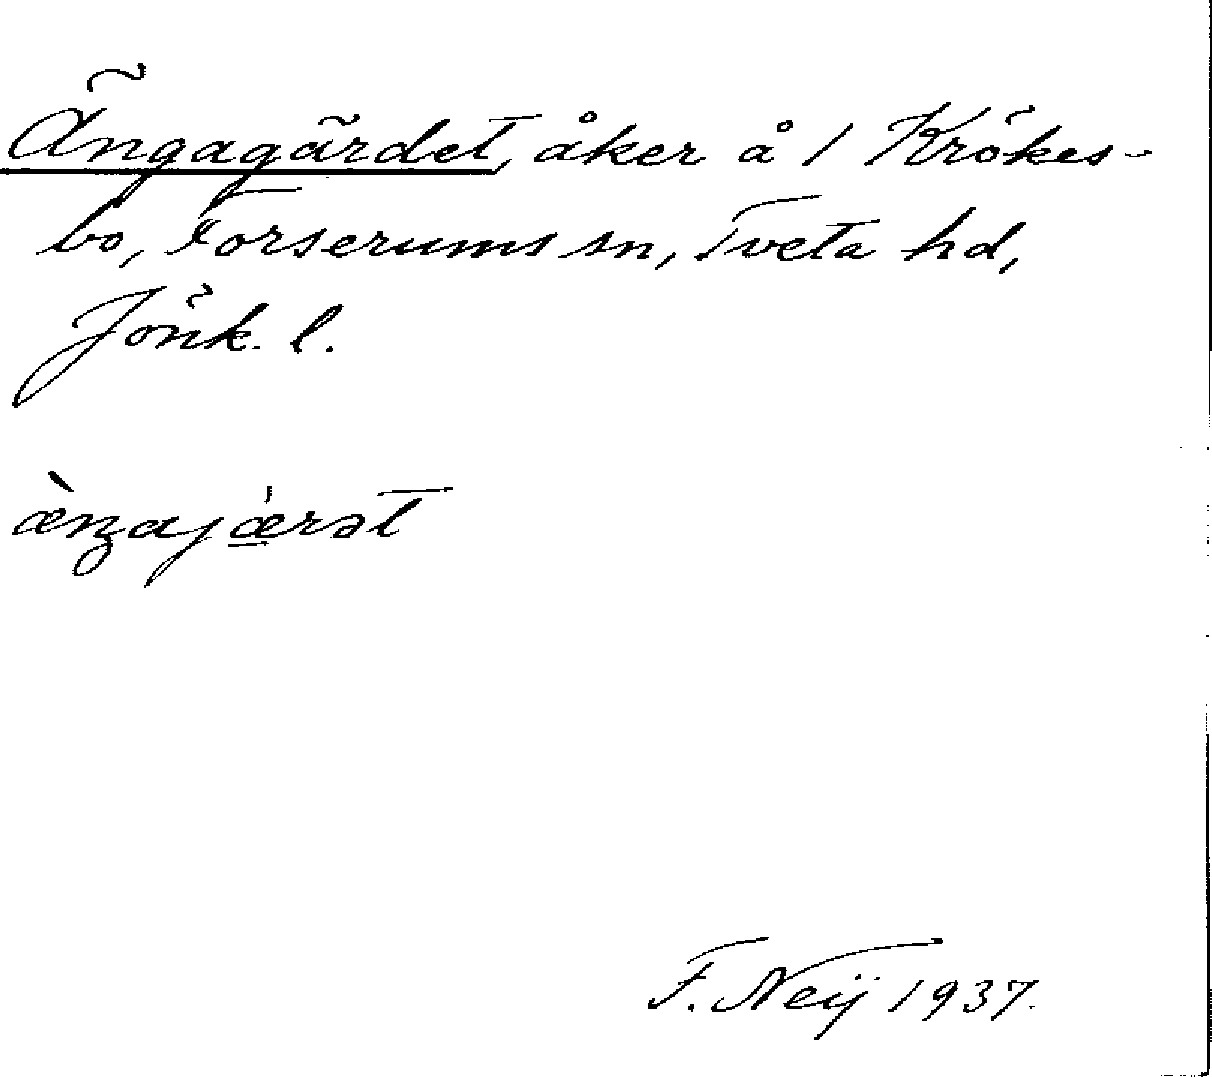 Ängagärdet, åker å 1 Krökes-
bo, Forserums sn, Tveta hd,
Jönk. l.
æ̀ŋajǽ̠rət
F. Neij 1937.